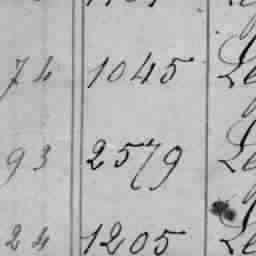 74 1045 Le
93 2579 Le
24 1205 Le